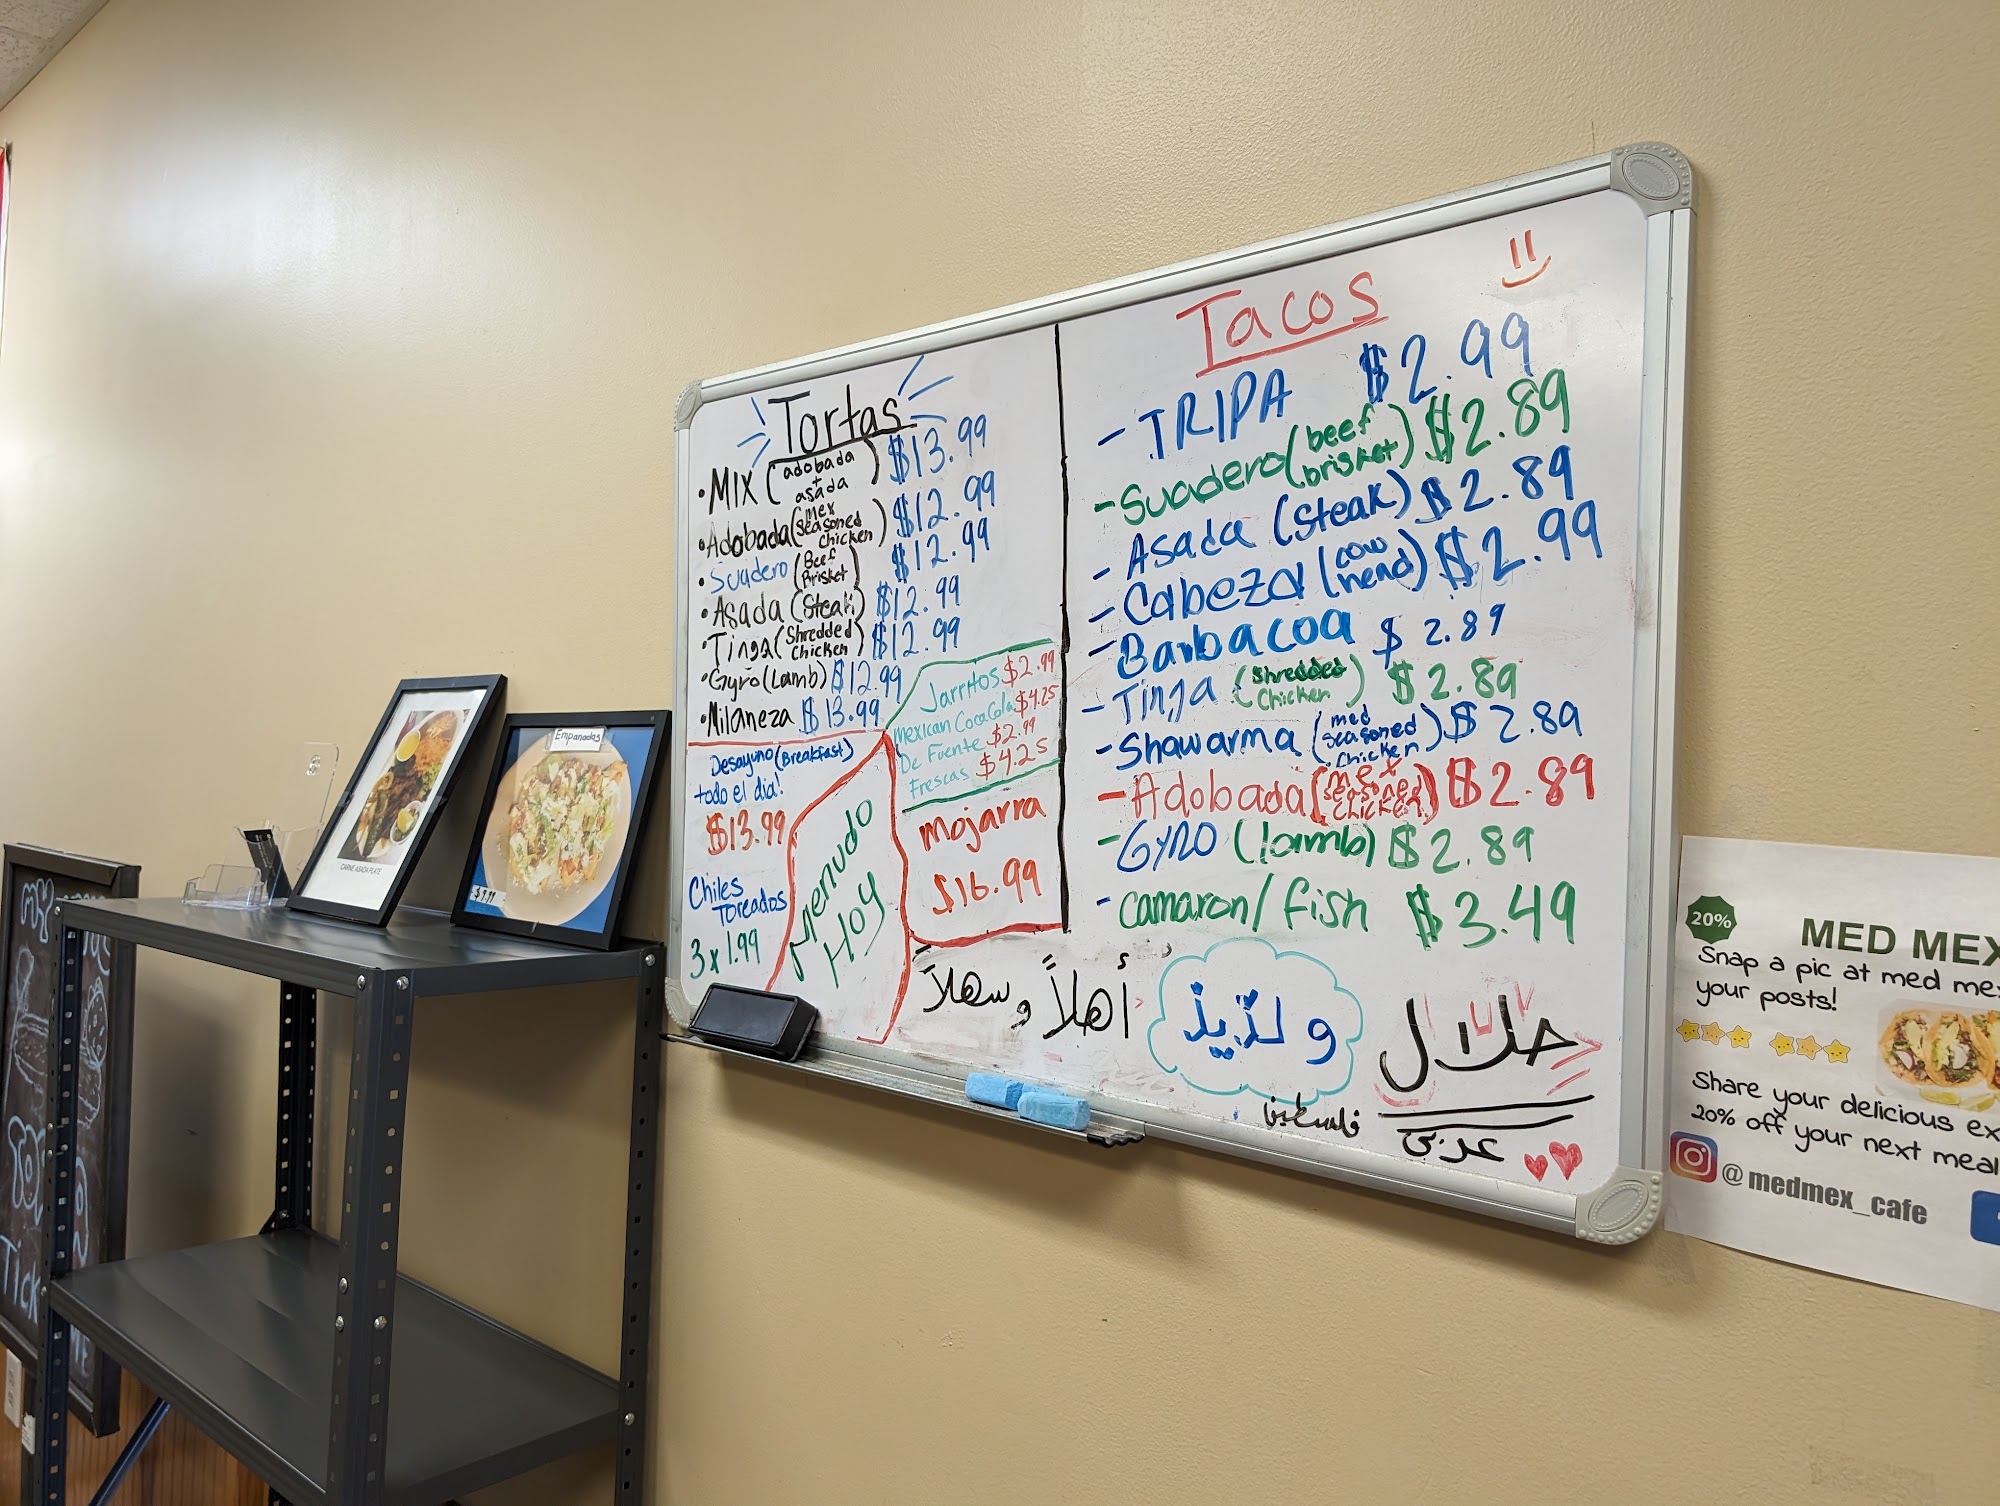 Tortas
• MIX (adobada + asada) $13.99
• Adobada (mex seasoned chicken) $12.99
• Suadero (Beef Brisket) $12.99
• Asada (Steak) $12.99
• Tinga (Shredded Chicken) $12.99
• Gyro (Lamb) $12.99
• Milaneza $13.99
Jarritos $2.99
Mexican CocaCola $4.25
De Fuente $2.99
Frescas $4.25
Desayuno (Breakfast)
todo el dia!
$13.99
Chiles
Toreados
3 x 1.99
Menudo
Hoy
Mojarra
$16.99
Tacos
- TRIPA $2.99
- Suadero (beef brisket) $2.89
- Asada (Steak) $2.89
- Cabeza (cow head) $2.99
- Barbacoa $2.89
- Tinga (Shredded Chicken) $2.89
- Shawarma (med seasoned chicken) $2.89
- Adobada (mex seasoned chicken) $2.89
- Gyro (lamb) $2.89
- Camaron/Fish $3.49
أهلاً و سهلاً
و لذيذ
حلال
عربي
فلسطين
Empanadas
$9.99
CARNE ASADA PLATE
20%
MED MEX
Snap a pic at med me
your posts!
Share your delicious ex
20% off your next meal
@medmex_cafe